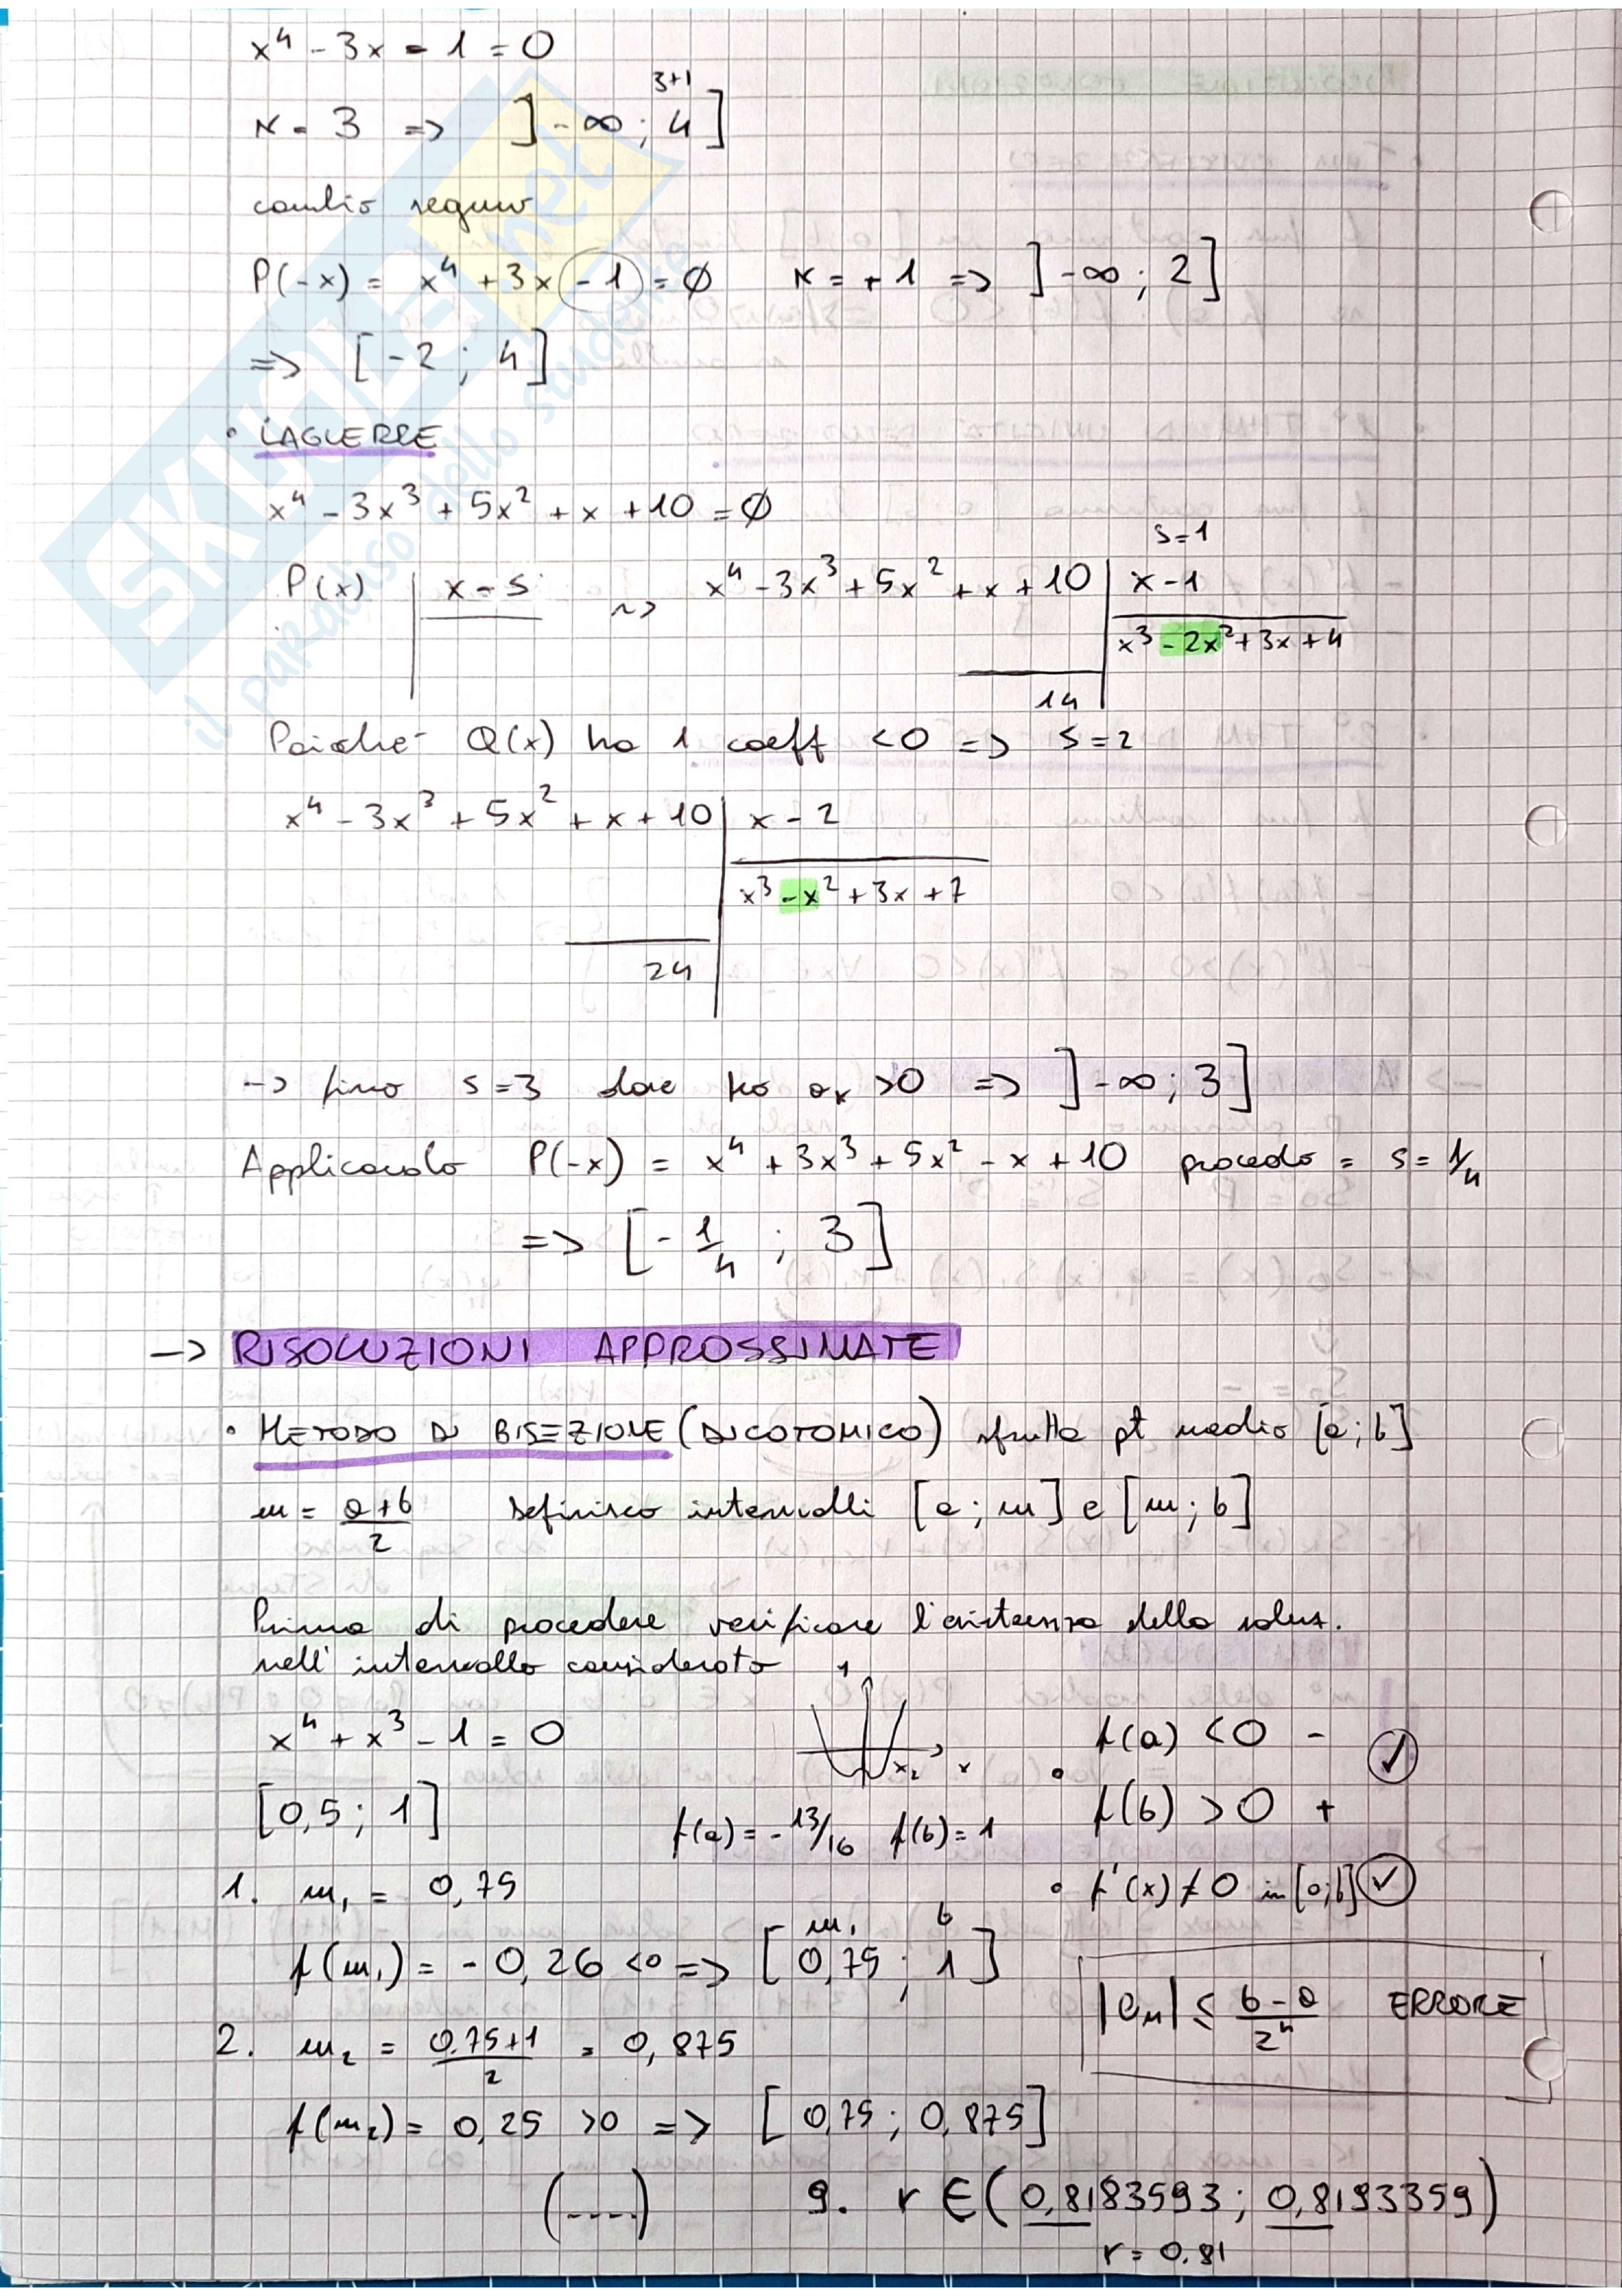 x⁴ - 3x - 1 = 0
3+1
K = 3 => ]-∞ ; 4]
cambio segno
P(-x) = x⁴ + 3x - 1 = 0 K = +1 => ]-∞ ; 2]
=> [-2 ; 4]
• LAGUERRE
x⁴ - 3x³ + 5x² + x + 10 = 0
s=1
P(x) | x - s ~> x⁴ - 3x³ + 5x² + x + 10 | x - 1
x³ - 2x² + 3x + 4
14
Poiché Q(x) ha 1 coeff <0 => s=2
x⁴ - 3x³ + 5x² + x + 10 | x - 2
x³ - x² + 3x + 7
24
-> fino s=3 dove ho aₖ >0 => ]-∞ ; 3]
Applicando P(-x) = x⁴ + 3x³ + 5x² - x + 10 procedo = s = 1/4
=> [-1/4 ; 3]
-> RISOLUZIONI APPROSSIMATE
• METODO DI BISEZIONE (DICOTOMICO) sfrutta pt medio [a ; b]
m = a+b/2 definisco intervalli [a ; m] e [m ; b]
Prima di procedere verificare l'esistenza della soluz.
nell'intervallo considerato
x⁴ + x³ - 1 = 0
x₂ x
f(a) < 0 -
[0,5 ; 1]
f(a) = -13/16 f(b) = 1
• f(b) > 0 + ✓
1. m₁ = 0,75
• f'(x) ≠ 0 in [a;b] ✓
m₁ b
f(m₁) = -0,26 <0 => [0,75 ; 1]
|eₙ| ≤ b-a/2ⁿ ERRORE
2. m₂ = 0,75+1/2 = 0,875
f(m₂) = 0,25 >0 => [0,75 ; 0,875]
(....) 9. r ∈ (0,8183593 ; 0,8193359)
r = 0.81
SKUOLA.net
il paradiso dello studente